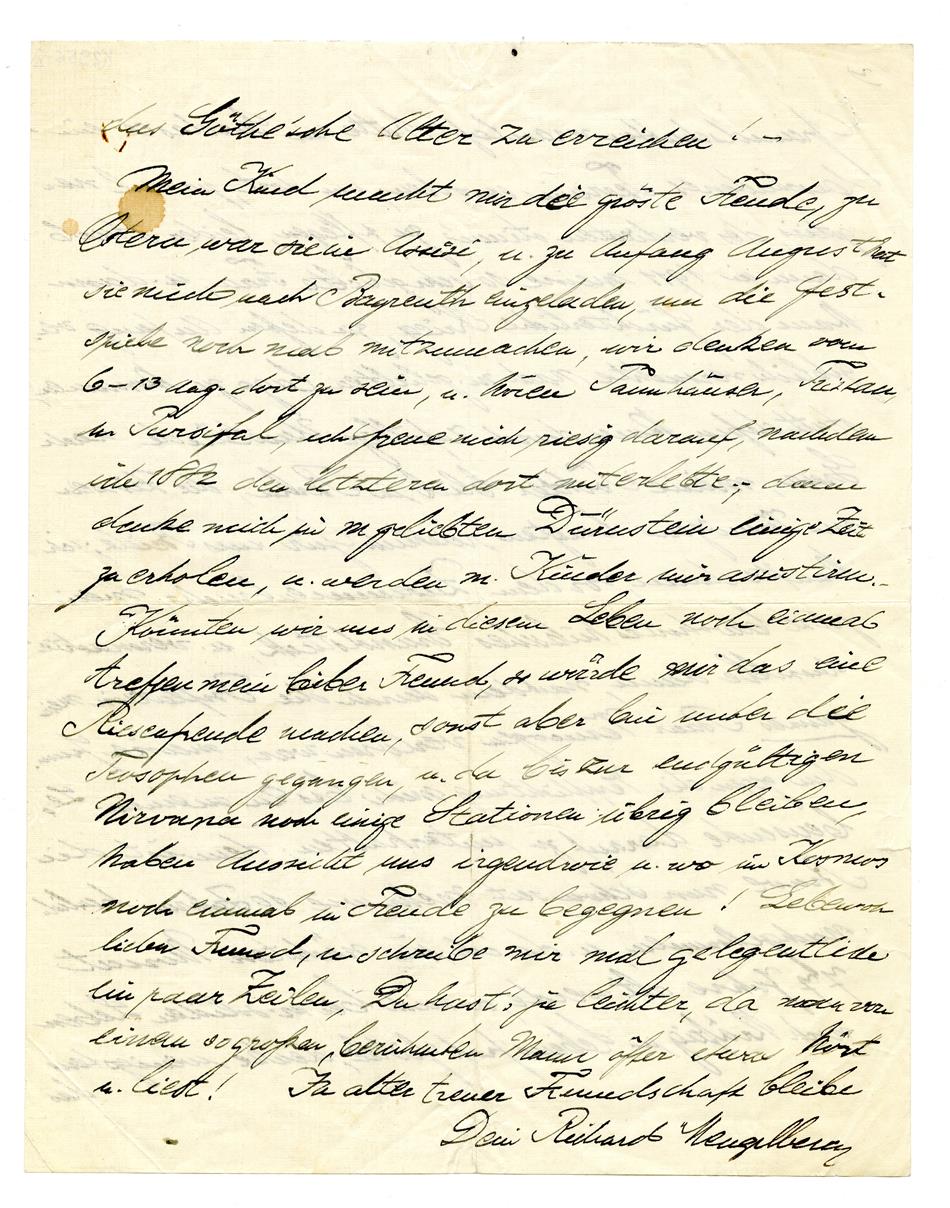 das Göthe'sche Alter zu erreichen! —
Mein Kind macht mir die gröste Freude, zu
Ostern war sie in Assisi, u. zu Anfang August hat
sie mich nach Bayreuth eingeladen, um die Fest-
spiele noch mal mitzumachen, wir denken vom
6–13 Aug. dort zu sein, u. hören Tannhäuser, Tristan,
u. Parsifal, ich freue mich riesig darauf, nachdem
ich 1882 den letzteren dort miterlebte; dann
denke mich in m geliebten Dürnstein einige Zeit
zu erholen, u. werden m. Kinder mir assistiren.–
Könnten wir uns in diesem Leben noch einmal
treffen mein lieber Freund, so würde mir das eine
Riesenfreude machen, sonst aber bin unter die
Teosophen gegangen, u. da bis zur endgültigen
Nirvana noch einige Stationen übrig bleiben,
haben Aussicht uns irgendwie u. wo im Kosmos
noch einmal in Freude zu begegnen! Lebewohl
lieber Freund, u. schreibe mir mal gelegentlich
ein paar Zeilen, Du hast's ja leichter, da man von
einem so großen, berühmten Mann öfter etwas hört
u. liest! In alter treuer Freundschaft bleibe
Dein Richard Mengelberg